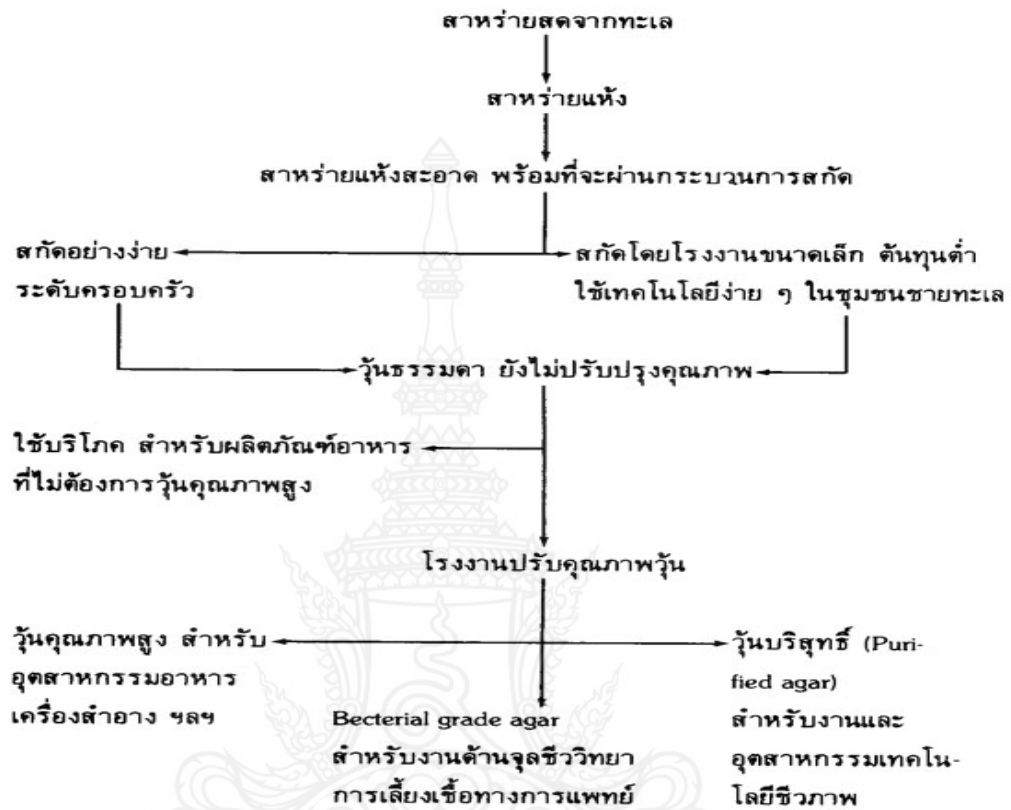 สาหร่ายสดจากทะเล
สาหร่ายแห้ง
สาหร่ายแห้งสะอาด พร้อมที่จะผ่านกระบวนการสกัด
สกัดอย่างง่าย
ระดับครอบครัว
สกัดโดยโรงงานขนาดเล็ก ต้นทุนต่ำ
ใช้เทคโนโลยีง่าย ๆ ในชุมชนชายทะเล
วุ้นธรรมดา ยังไม่ปรับปรุงคุณภาพ
ใช้บริโภค สำหรับผลิตภัณฑ์อาหาร
ที่ไม่ต้องการวุ้นคุณภาพสูง
โรงงานปรับคุณภาพวุ้น
วุ้นคุณภาพสูง สำหรับ
อุตสาหกรรมอาหาร
เครื่องสำอาง ฯลฯ
Becterial grade agar
สำหรับงานด้านจุลชีววิทยา
การเลี้ยงเชื้อทางการแพทย์
วุ้นบริสุทธิ์ (Puri-
fied agar)
สำหรับงานและ
อุตสาหกรรมเทคโน-
โลยีชีวภาพ